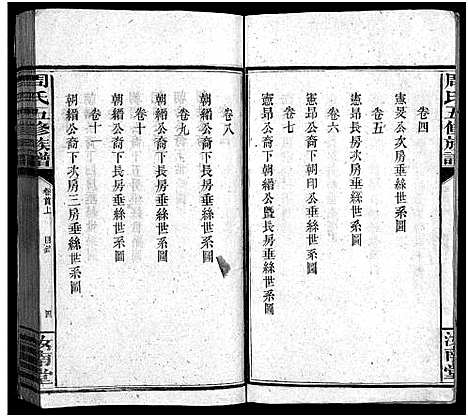 周氏五修族譜
汝南堂
卷四
憲昊公次房垂絲世系圖
卷五
憲昂公長房垂絲世系圖
卷六
憲昂公裔下朝印公垂絲世系圖
卷七
憲昂公裔下朝縉公暨長房垂絲世系圖
卷八
朝縉公裔下次房垂絲世系圖
卷九
朝縉公裔下長房垂絲世系圖
卷十
朝縉公裔下長房垂絲世系圖
卷十一
朝縉公裔下次房三房垂絲世系圖
周氏五修族譜
卷首上
目錄
四
汝南堂